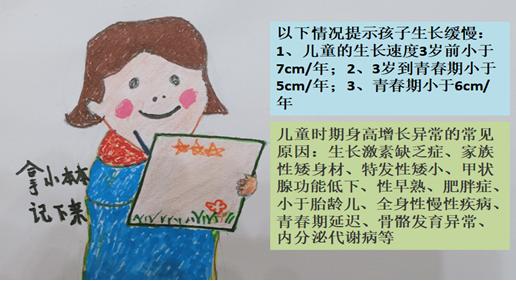 以下情况提示孩子生长缓慢:
1、儿童的生长速度3岁前小于
7cm/年; 2、3岁到青春期小于
5cm/年; 3、青春期小于6cm/
年
儿童时期身高增长异常的常见
原因: 生长激素缺乏症、家族
性矮身材、特发性矮小、甲状
腺功能低下、性早熟、肥胖症、
小于胎龄儿、全身性慢性疾病、
青春期延迟、骨骼发育异常、
内分泌代谢病等
拿小本本
记下来